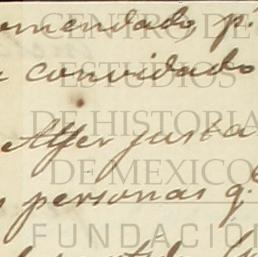 omendado, p.
convidado
Alfer justa
personas q.
CENTRO DE
ESTUDIOS
DE HISTORIA
DE MEXICO
FUNDACIÓN